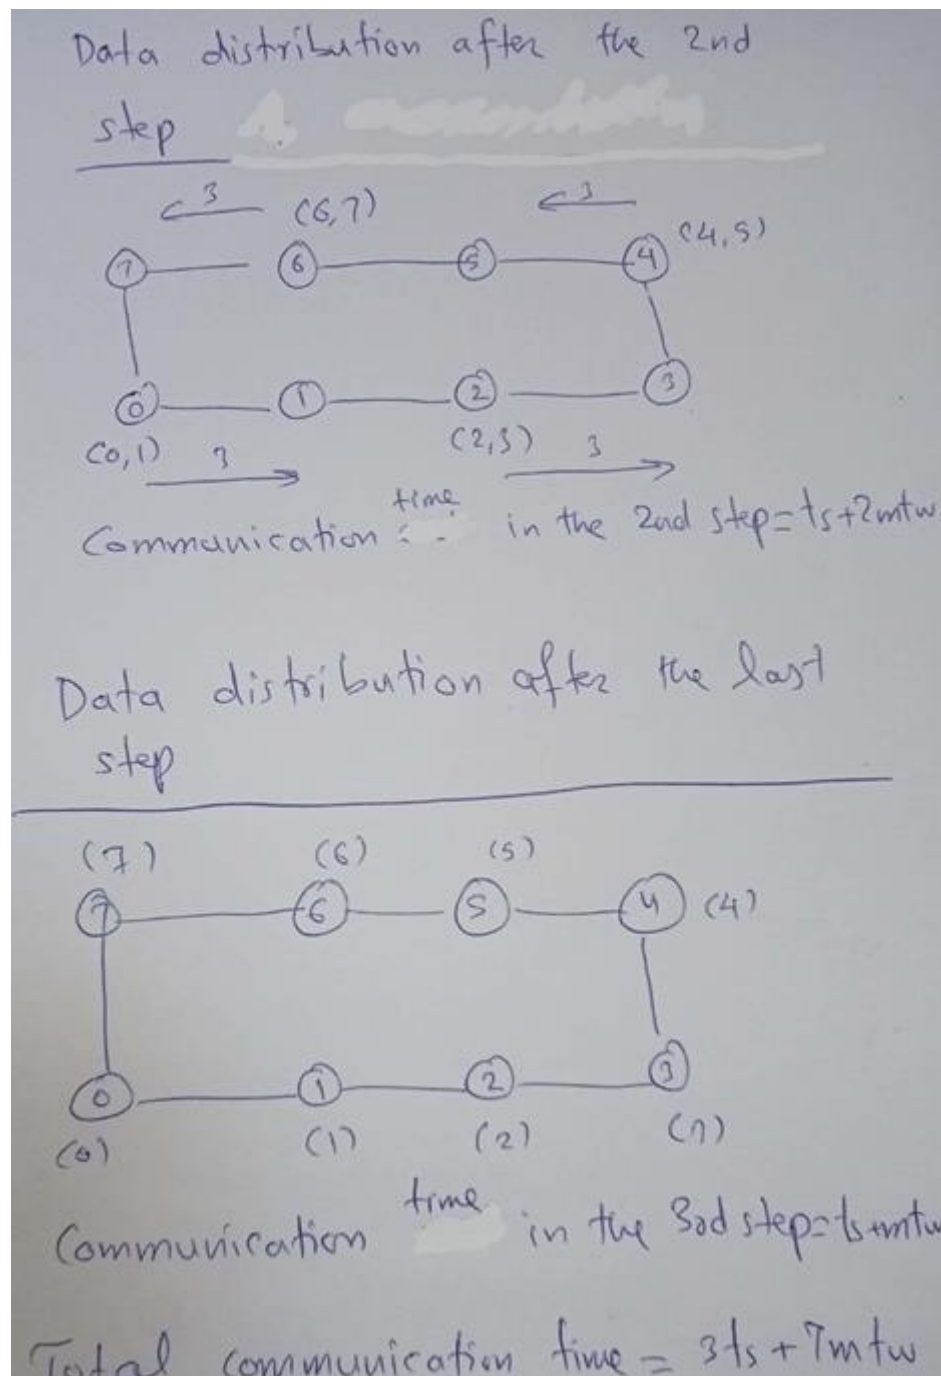 Data distribution after the 2nd
step
3 3
(6,7) (4,5)
7 6 5 4
0 1 2 3
(0,1) 3 (2,3) 3
time
Communication in the 2nd step=ts+2mtw
Data distribution after the last
step
(7) (6) (5)
7 6 5 4 (4)
0 1 2 3
(0) (1) (2) (3)
time
Communication in the 3rd step=ts+mtw
Total communication time = 3ts+7mtw